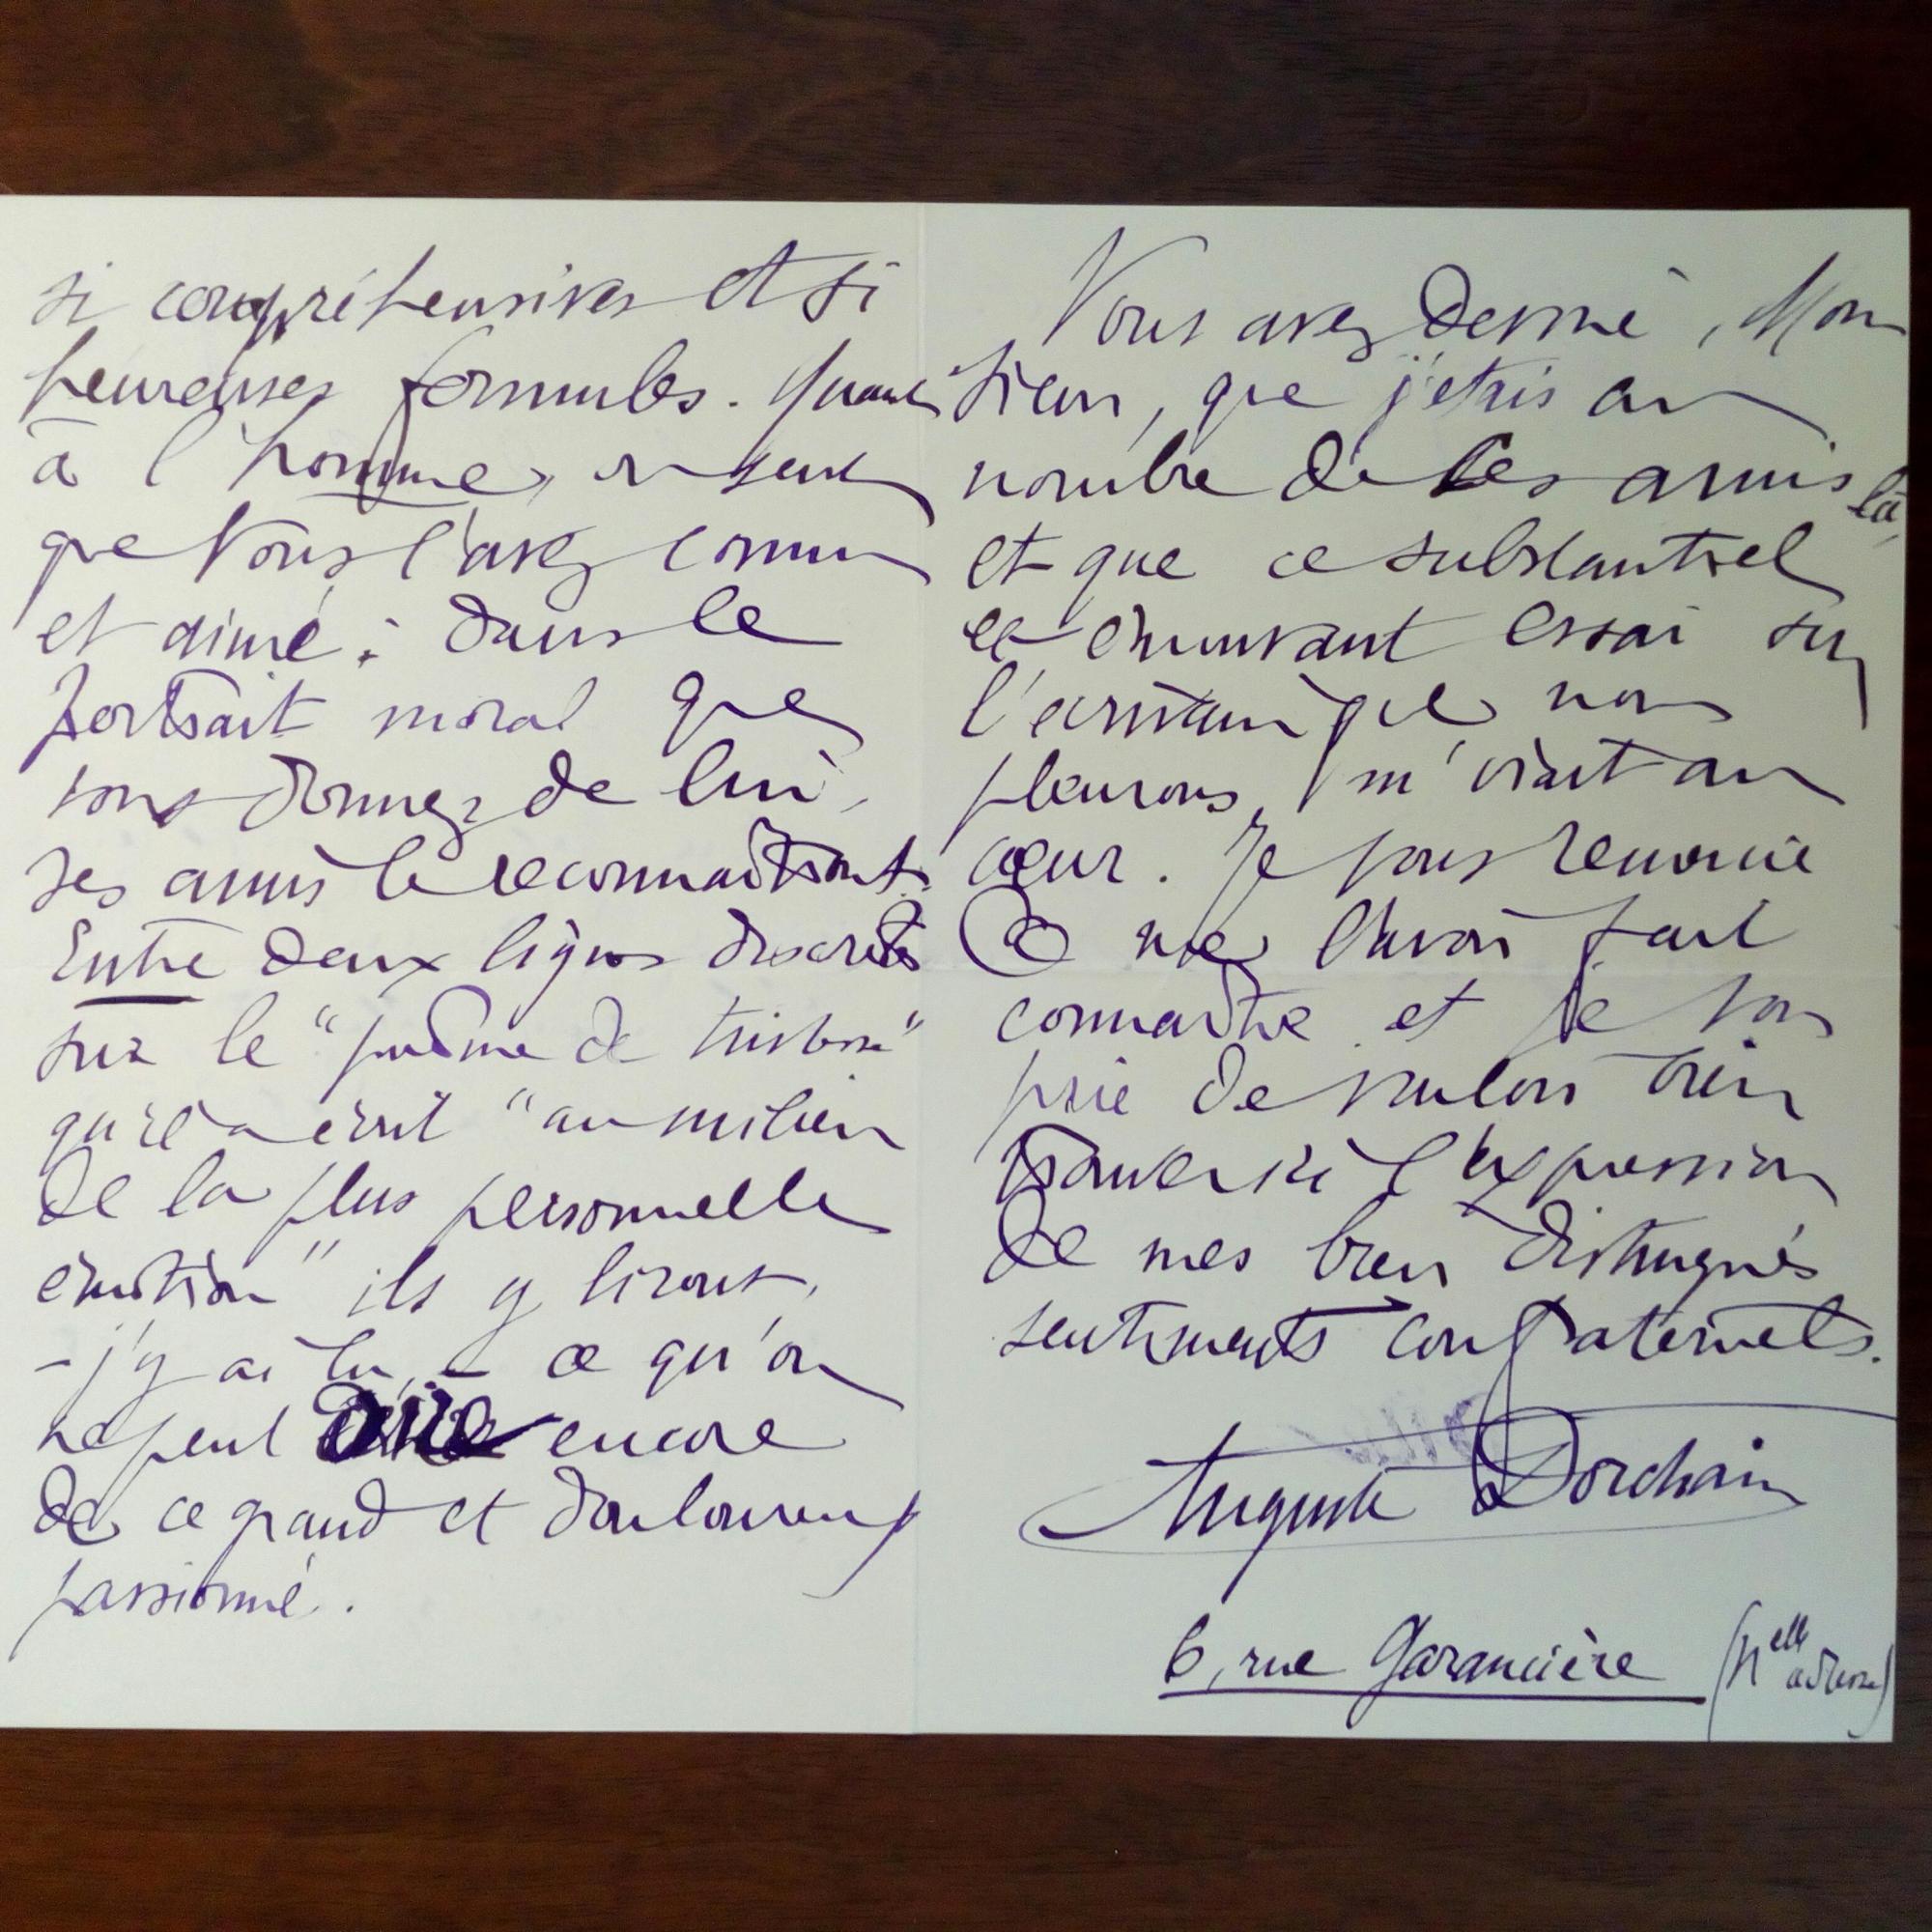 si compréhensives et si
heureuses formules. Quant
à l'homme, on sent
que vous l'avez connu
et aimé : dans le
portrait moral que
vous donnez de lui,
ses amis le reconnaîtront.
Entre deux lignes discrètes
sur le "poème de tristesse"
qu'il a écrit "au milieu
de la plus personnelle
émotion" ils y liront,
- j'y ai lu, - ce qu'on
ne peut dire encore
de ce grand et douloureux
passionné.
Vous avez deviné, Mon
sieur, que j'étais au
nombre de ces amis là,
et que ce substantiel
et émouvant essai sur
l'écrivain que nous
pleurons, m'irait au
cœur. Je vous remercie
de me l'avoir fait
connaître et je vous
prie de vouloir bien
trouver ici l'expression
de mes bien distingués
sentiments confraternels.
Auguste Dorchain
6, rue Garancière (Nelle adresse)